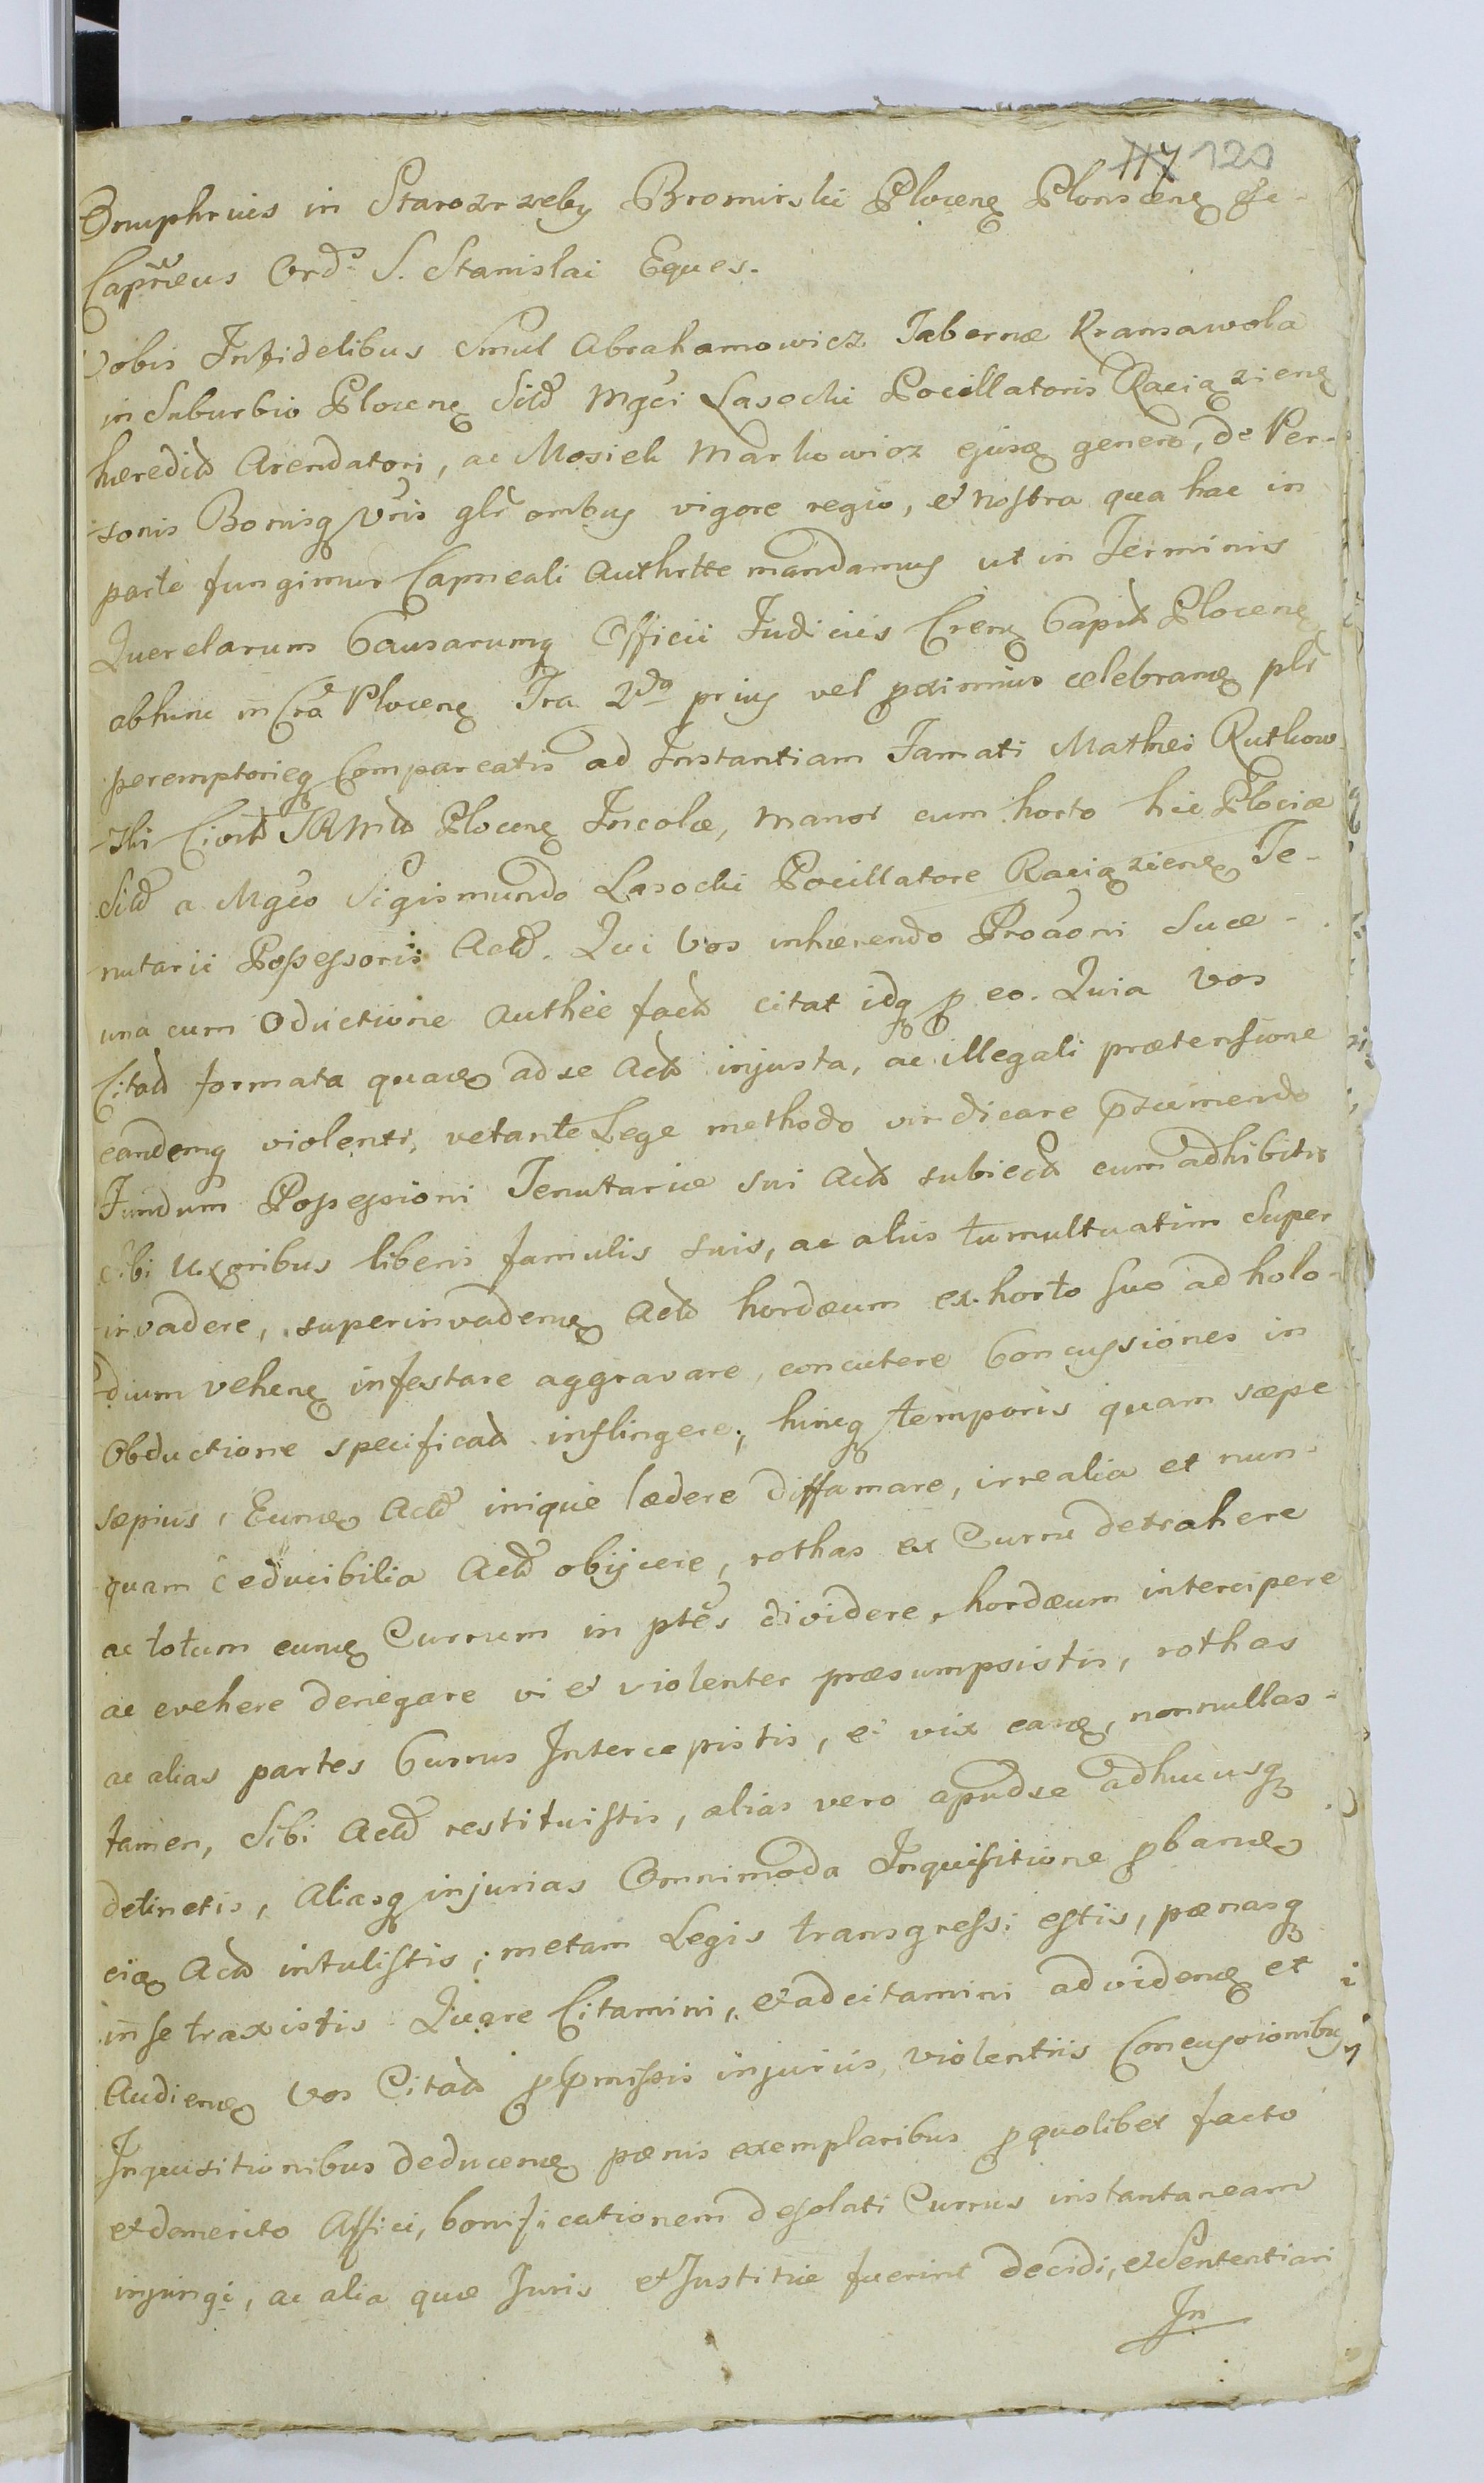 117 120
Onuphrius in Starozrzeby Bromirski Plocenȩ Plonscenȩ &c-
Capneus Ordis S. Stanislai Eques.
Vobis Infidelibus Smul Abrahamowicz Tabernæ Kransawola
in Suburbio Plocenȩ Sitæ Mgci Lasocki Pocillatoris Raciązienȩ
hæredit Arendatori, ac Mosiek Markowicz ejusȩ genero, de Per-
sonis Bonisq vris glr ombus vigore regio, et nostra qua hac in
parte fungimur Capneali Authrtte mandamus ut in Terminis
Querelarum Causarumq Officii Judiciis Crenȩ Capit Plocenȩ
abhinc in Cra Plocenȩ Fra 2da prius vel pximius celebranȩ plr
peremptorieq Compareatis ad Instantiam Famati Mathei Rutkow-
ski Civit SRMtt Plocenȩ Incolæ, manor cum horto hic Plociæ
Sit a Mgco Sigismundo Lasocki Pocillatore Raciązienȩ Te-
nutarii Possessoris Act. Qui Vos inhærendo Proaoni suæ -
una cum Oductione Authee fact citat idq p eo. Quia Vos
Citat formata quaȩ ad se Act injusta, ac illegali prætensione
eandemq violenti, vetante Lege methodo vindicare psumendo
Fundum Possessioni Tenutariæ sui Act subiect cum adhibitis
sibi Uxoribus liberis famulis suis, ac aliis tumultuatim Super
invadere, superinvadenȩ Act hordæum ex horto suo ad holo-
dium vehenȩ infestare aggravare, concutere Concussiones in
Obductione specificat inflingere, hincq temporis quam sæpe
sæpius, Eunȩ Act inique lædere diffamare, irrealia et nun-
quam ceducibilia Act obijcere, rothas ex Curru detrahere
ac totum eunȩ Currum in ptes dividere, hordæum intercipere
ac evehere denegare vi et violenter præsumpsistis, rothas
ac alias partes Currus Intercepistis, et vix easȩ, nonnullas -
tamen, sibi Act restituistis, alias vero apud se adhucusq
detinetis, Aliasq injurias Omnimoda Inquisitione pbanȩ
eiȩ Act intulistis, metam Legis transgressi estis, pænasq
in se traxistis. Quare Citamini, et adcitamini ad videnȩ et
Audienȩ Vos Citat p pmissis injuriis, violentiis Concussionibus
Inquisitionibus deducenȩ pænis exemplaribus p quolibet facto
et demerito Affici, bonificationem desolati Currus instantaneam
injungi, ac alia quæ Juris et Justitiæ fuerint decidi, et Sententiari
In